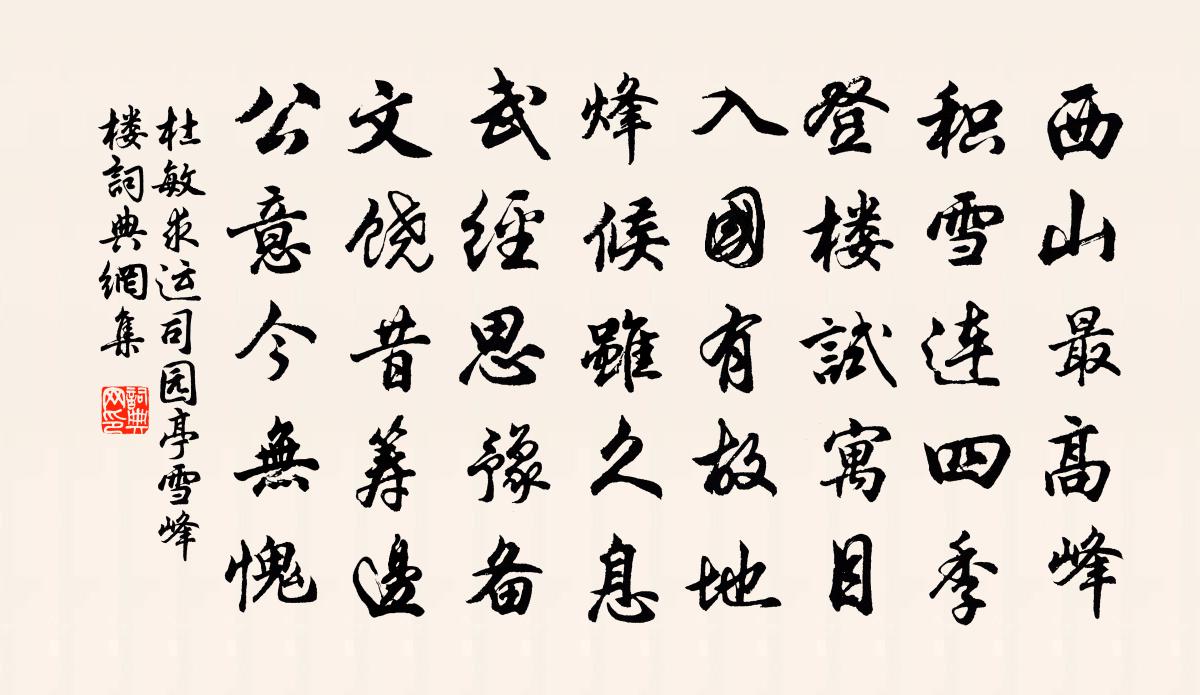 西山最高峰
积雪连四季
登楼試寓目
入國有故地
烽候雖久息
武經思豫备
文饶昔筹邊
公意今無愧
杜敏求运司园亭雪峰
楼詞典網集
詞典
网印